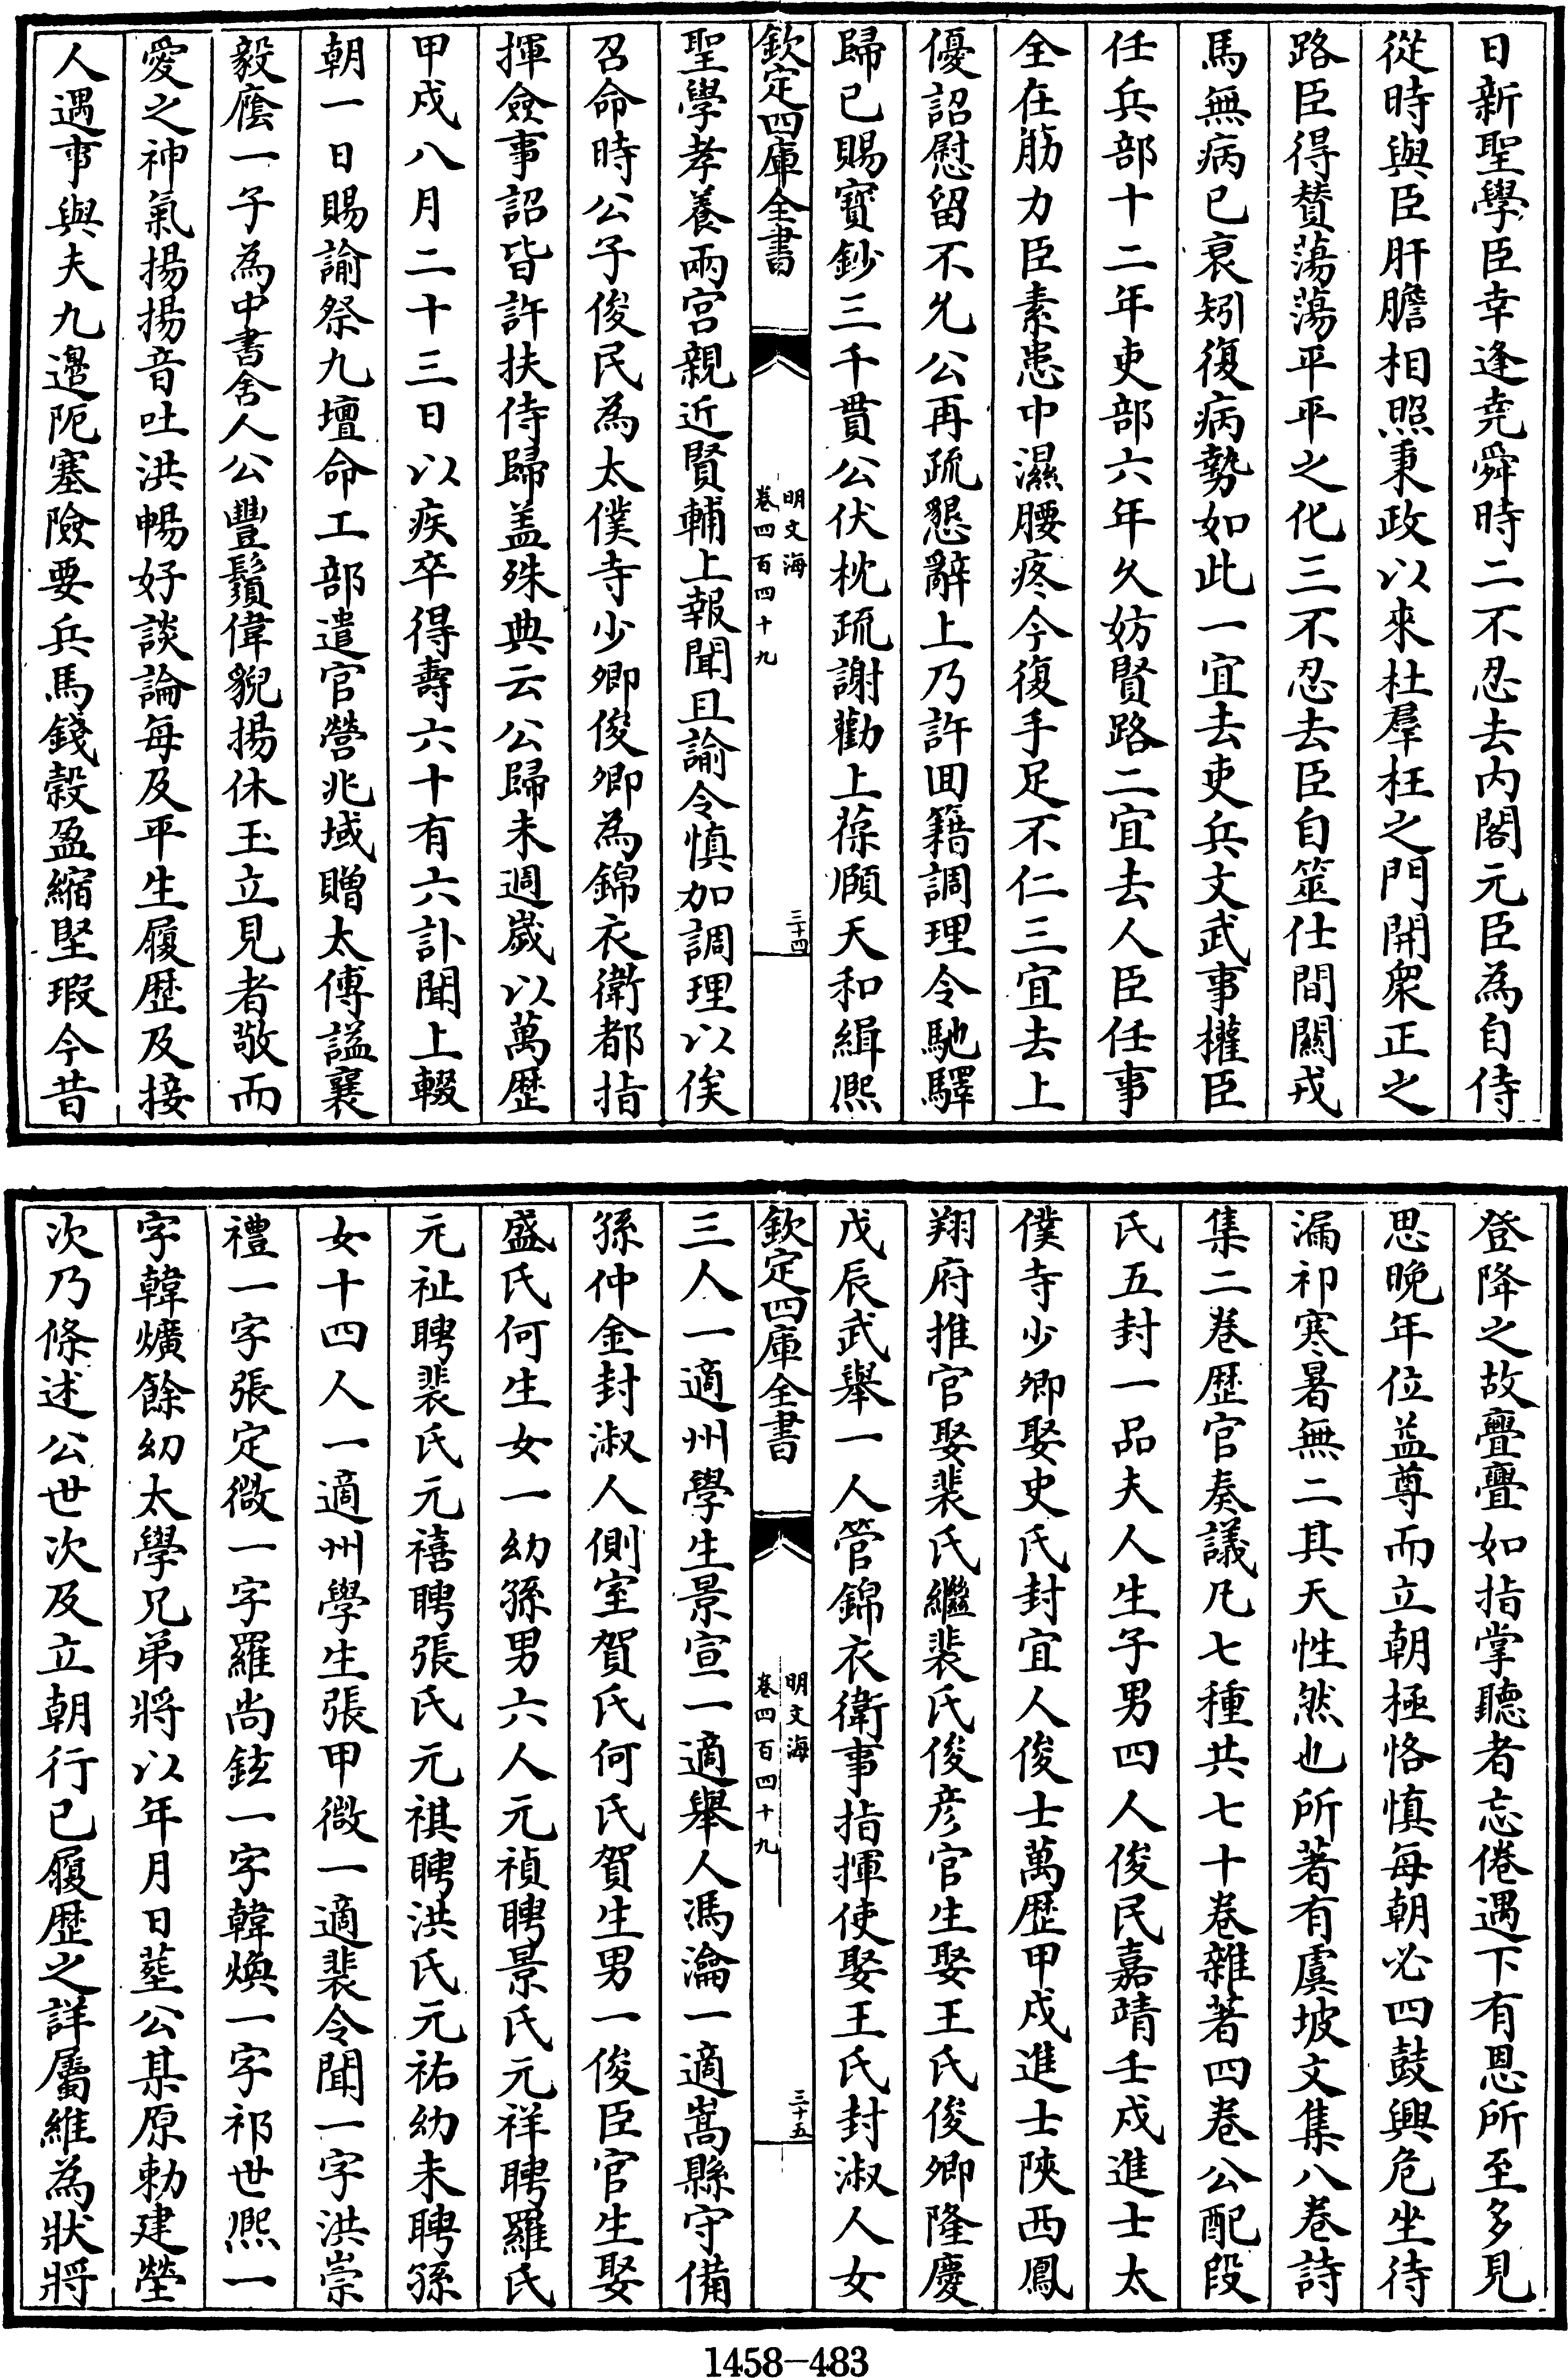 日新聖學臣幸逢堯舜時二不忍去内閣元臣為自侍
從時與臣肝膽相照秉政以來杜羣枉之門開衆正之
路臣得賛蕩蕩平平之化三不忍去臣自筮仕間關戎
馬無病已衰矧復病勢如此一宜去吏兵文武事權臣
任兵部十二年吏部六年久妨賢路二宜去人臣任事
全在筋力臣素患中濕腰疼今復手足不仁三宜去上
優詔慰留不允公再疏懇辭上乃許囬籍調理令馳驛
歸已賜寳鈔三千貫公伏枕疏謝勸上葆頤天和緝熈
欽定四庫全書
明文海
卷四百四十九
三十四
聖學孝養兩宫親近賢輔上報聞且諭令慎加調理以俟
召命時公子俊民為太僕寺少卿俊卿為錦衣衛都指
揮僉事詔皆許扶侍歸盖殊典云公歸未週嵗以萬歴
甲戍八月二十三日以疾卒得壽六十有六訃聞上輟
朝一日賜諭祭九壇命工部遣官營兆域贈太傅諡襄
毅廕一子為中書舍人公豐鬚偉貌揚休玉立見者敬而
愛之神氣揚揚音吐洪暢好談論每及平生履歴及接
人遇事與夫九邉阨塞險要兵馬錢榖盈縮堅瑕今昔
登降之故亹亹如指掌聽者忘倦遇下有恩所至多見
思晚年位益尊而立朝極恪慎每朝必四鼓興危坐待
漏祁寒暑無二其天性然也所著有虞坡文集八巻詩
集二巻歴官奏議凡七種共七十巻雜著四巻公配段
氏五封一品夫人生子男四人俊民嘉靖壬戍進士太
僕寺少卿娶史氏封宜人俊士萬歴甲戍進士陜西鳳
翔府推官娶裴氏繼裴氏俊彦官生娶王氏俊卿隆慶
戊辰武舉一人管錦衣衛事指揮使娶王氏封淑人女
欽定四庫全書
明文海
卷四百四十九
三十五
三人一適州學生景宣一適舉人馮瀹一適嵩縣守備
孫仲金封淑人側室賀氏何氏賀生男一俊臣官生娶
盛氏何生女一幼孫男六人元禎聘景氏元祥聘羅氏
元祉聘裴氏元禧聘張氏元祺聘洪氏元祐幼未聘孫
女十四人一適州學生張甲微一適裴令聞一字洪崇
禮一字張定微一字羅尚鉉一字韓煥一字祁世熈一
字韓爌餘幼太學兄弟將以年月日塟公某原勅建塋
次乃條述公世次及立朝行己履歴之詳屬維為狀將
1458—483